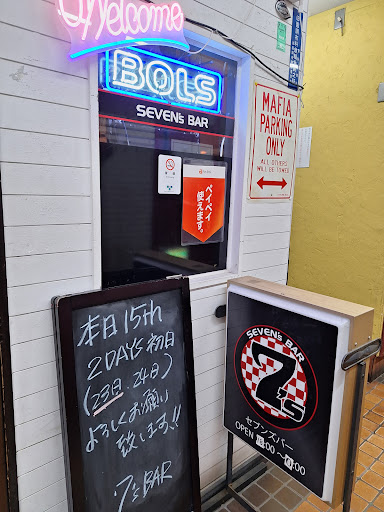 Welcome
BOLS
SEVEN's BAR
ペイペイ
使えます。
MAFIA
PARKING
ONLY
ALL OTHERS
WILL BE TOWED
本日15th
2DAYS 初日
(23日.24日)
よろしくお願い
致します!!
7's BAR
SEVEN's BAR
7's
セブンズバー
OPEN